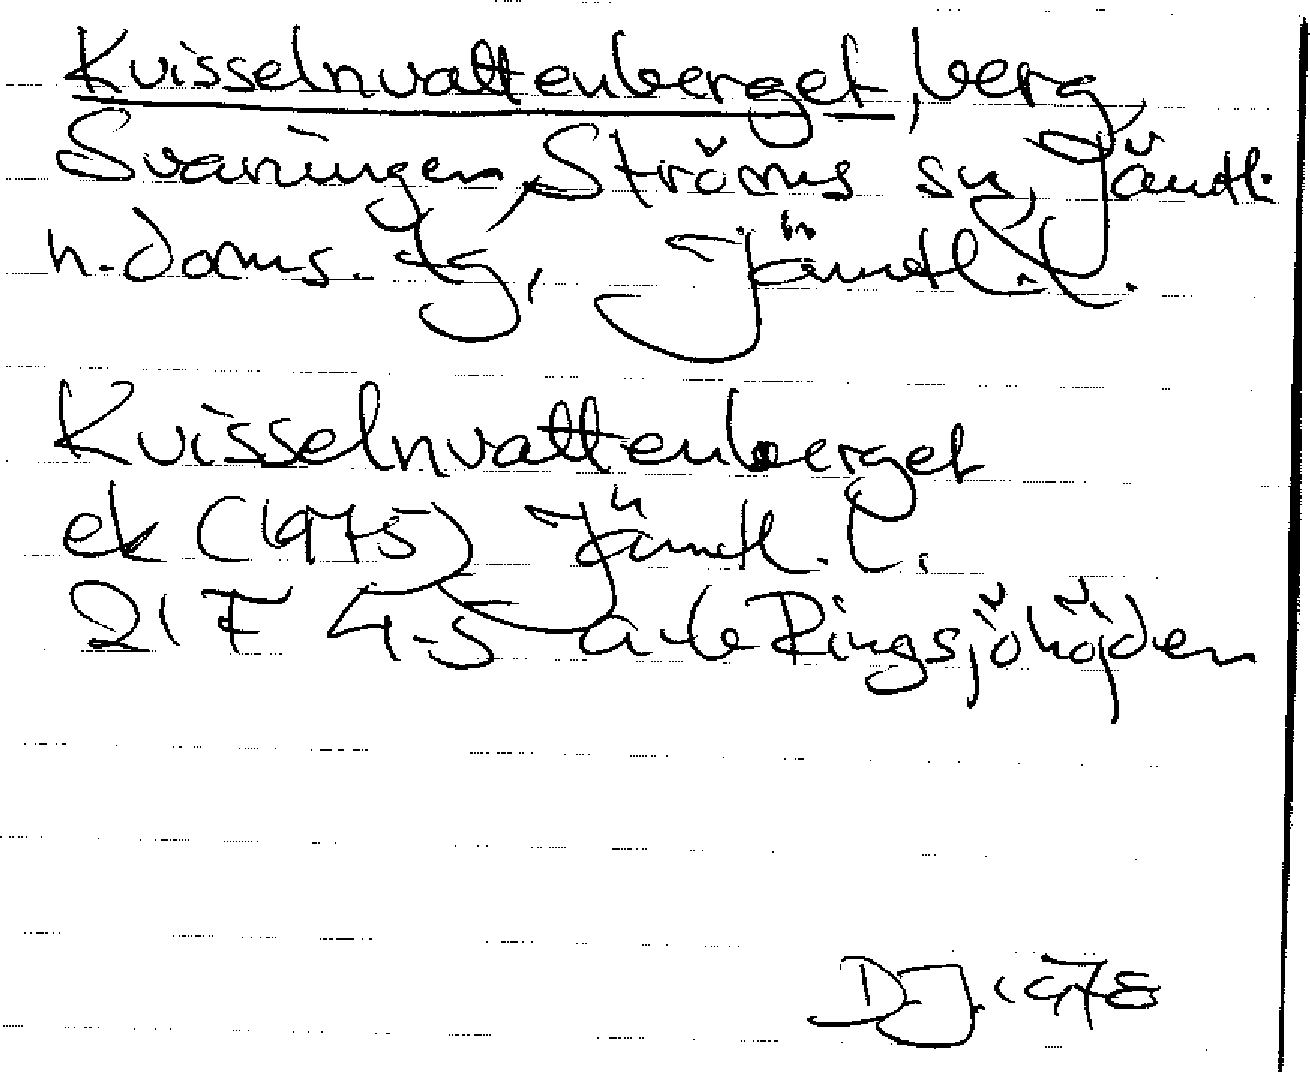 Kvisselnvattenberget, berg
Svaningen, Ströms sn, Jämtl.
n. doms. tg, Jämtl. l.
Kvisselnvattenberget
ek (1975) Jämtl. l.
21 F 4-5 a-b Ringsjöhöjden
DJ. 1978